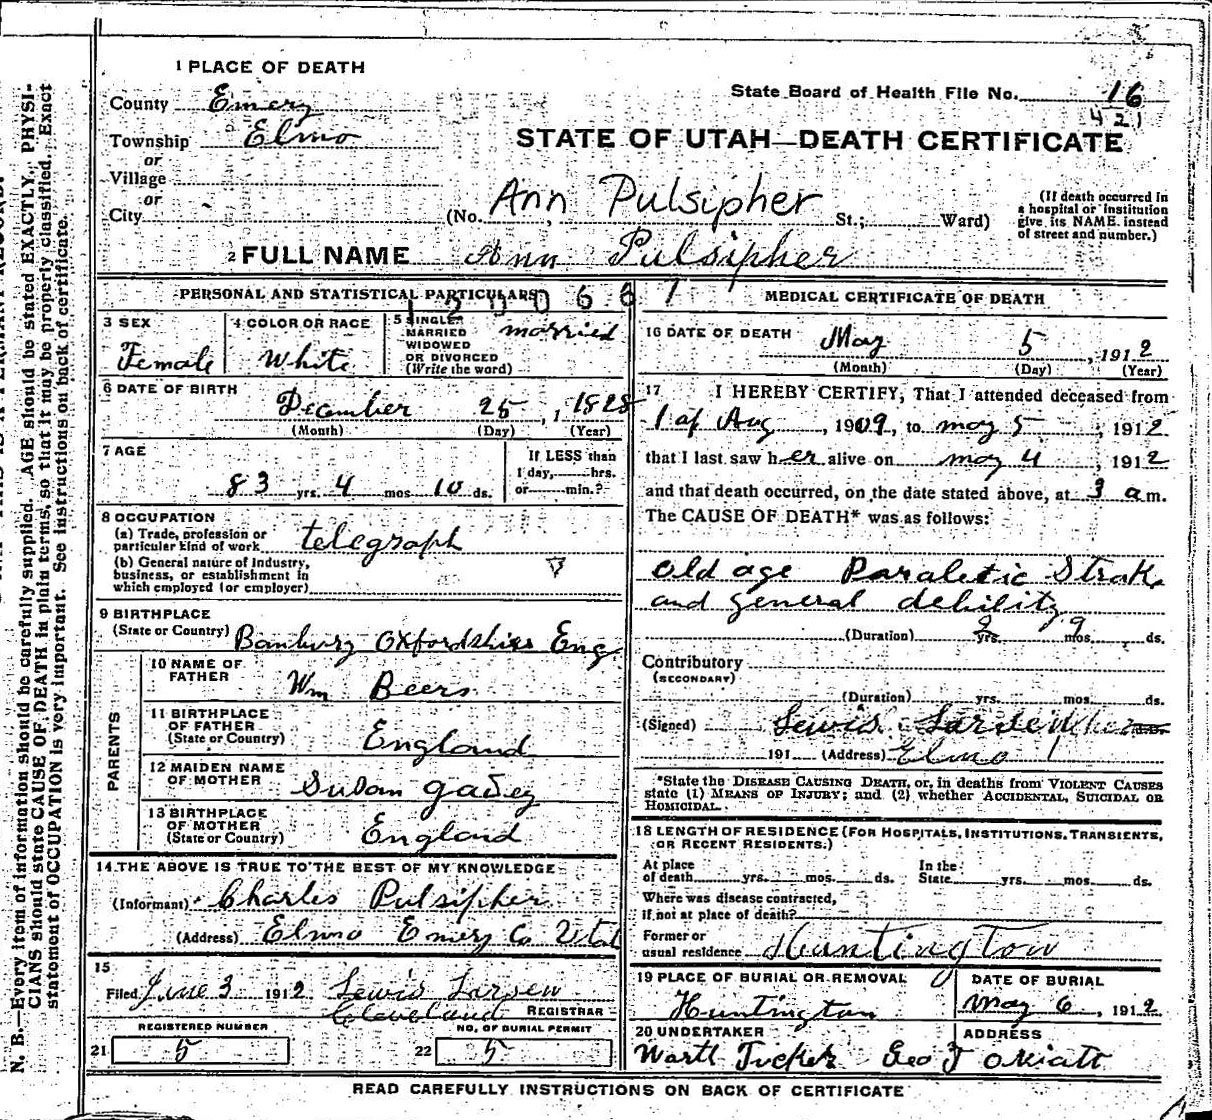 1 PLACE OF DEATH
County Emery
State Board of Health File No. 16
4 21
Township Elmo
STATE OF UTAH—DEATH CERTIFICATE
or
Village
or
City
(No. Ann Pulsipher St.; Ward)
(If death occurred in
a hospital or institution
give its NAME instead
of street and number.)
2 FULL NAME Ann Pulsipher
PERSONAL AND STATISTICAL PARTICULARS
3 SEX
Female
4 COLOR OR RACE
White
5 SINGLE
MARRIED
WIDOWED
OR DIVORCED
(Write the word)
married
6 DATE OF BIRTH
December 25, 1828
(Month) (Day) (Year)
7 AGE
83 yrs. 4 mos 10 ds.
If LESS than
1 day, hrs.
or min.?
8 OCCUPATION
(a) Trade, profession or
particular kind of work telegraph
(b) General nature of Industry,
business, or establishment in
which employed (or employer)
9 BIRTHPLACE
(State or Country) Banbury Oxfordshire Eng
PARENTS
10 NAME OF
FATHER Wm Beers
11 BIRTHPLACE
OF FATHER
(State or Country) England
12 MAIDEN NAME
OF MOTHER Susan
13 BIRTHPLACE
OF MOTHER
(State or Country) England
14 THE ABOVE IS TRUE TO THE BEST OF MY KNOWLEDGE
(Informant) Charles Pulsipher
(Address) Elmo Emery Co Utah
15
Filed June 3 1912 Lewis Larsen
Cleveland REGISTRAR
REGISTERED NUMBER
21 5
NO. OF BURIAL PERMIT
22 5
MEDICAL CERTIFICATE OF DEATH
16 DATE OF DEATH May 5, 1912
(Month) (Day) (Year)
17 I HEREBY CERTIFY, That I attended deceased from
1 of Aug, 1909, to may 5, 1912
that I last saw her alive on may 4, 1912
and that death occurred, on the date stated above, at 3 am.
The CAUSE OF DEATH* was as follows:
old age Paraletic Stroke
and general debility
(Duration) 2 yrs. 9 mos. ds.
Contributory
(SECONDARY)
(Duration) yrs. mos. ds.
(Signed) Lewis Larsen
191 (Address) Elmo
*State the DISEASE CAUSING DEATH, or, in deaths from VIOLENT CAUSES
state (1) MEANS OF INJURY; and (2) whether ACCIDENTAL, SUICIDAL OR
HOMICIDAL.
18 LENGTH OF RESIDENCE (FOR HOSPITALS, INSTITUTIONS, TRANSIENTS,
OR RECENT RESIDENTS.)
At place
of death yrs. mos. ds.
In the
State yrs. mos. ds.
Where was disease contracted,
if not at place of death?
Former or
usual residence Huntington
19 PLACE OF BURIAL OR REMOVAL
Huntington
DATE OF BURIAL
May 6, 1912
20 UNDERTAKER
Tucker
ADDRESS
READ CAREFULLY INSTRUCTIONS ON BACK OF CERTIFICATE
N. B.—Every item of information should be carefully supplied. AGE should be stated EXACTLY. PHYSI-
CIANS should state CAUSE OF DEATH in plain terms, so that it may be properly classified. Exact
statement of OCCUPATION is very important. See instructions on back of certificate.